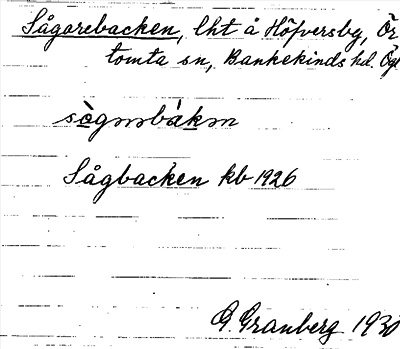 Sågarebacken, lht å Höfversby, Ör
tomta sn, Bankekinds hd. Ögl
Sågbacken kb 1926
G. Granberg 1930